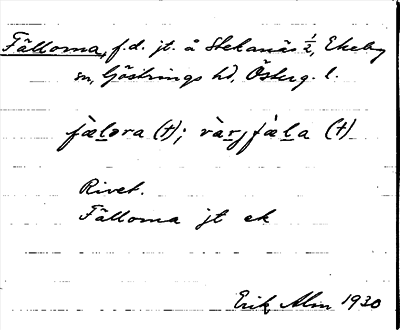 Fällorna, f.d. jt. å Stekanäs 1/2, Ekeby
sn, Göstrings hd, Österg. l.
fæ̀lǝra (†); và̀rj fæ̀la (†)
Rivet.
Fällorna jt ek
Erik Alm 1930